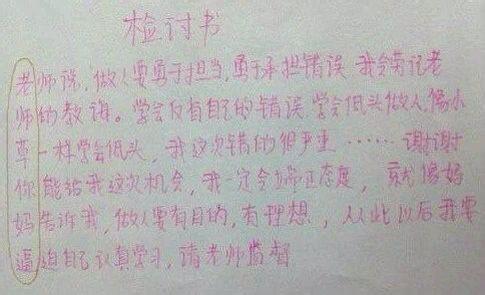 检讨书
老师说,做人要勇于担当,勇于承担错误 我会牢记老
师的教诲。学会反省自己的错误,学会低头做人,像小
草一样学会低头,我这次错的很严重……谢谢
你能给我这次机会,我一定会端正态度,就像妈
妈告诉我,做人要有目的,有理想,从此以后我要
逼迫自己认真学习,请老师监督